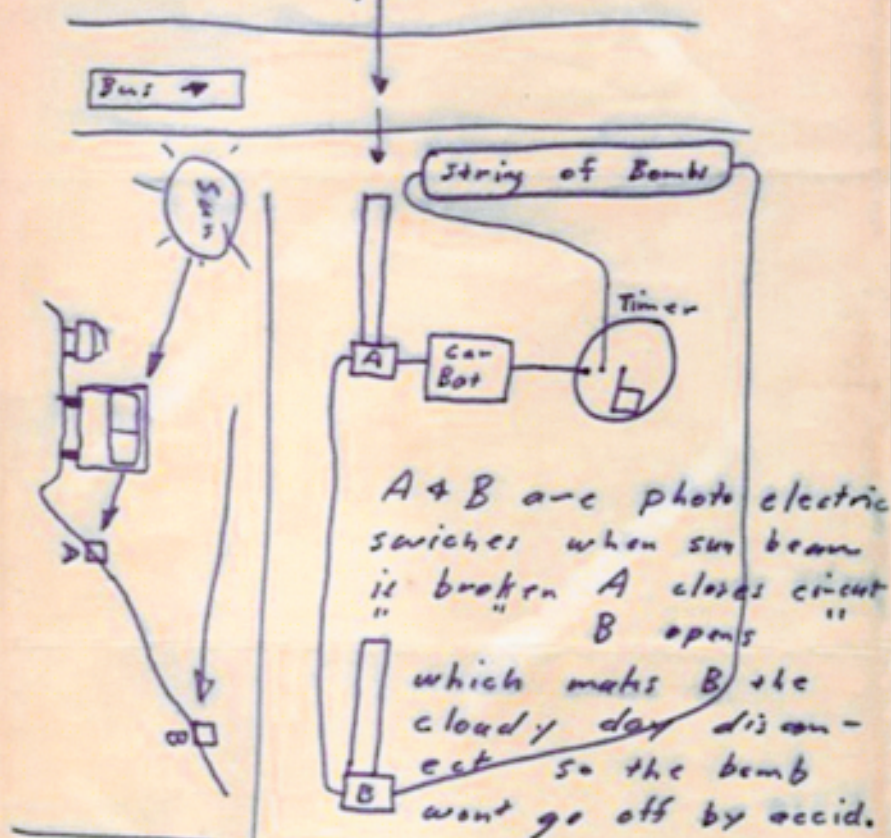 Bus →
Sun
String of Bombs
Timer
A
Car
Bat
A
B
B
A & B are photo electric
swiches when sun beam
is broken A closes circut
" " B opens "
which maks B the
cloudy day discon-
ect so the bomb
wont go off by accid.